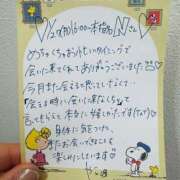 2/9(月)16:00〜本指名Nさん
めっちゃくちゃお忙しいタイミングで
会いに来てくれてありがとうございました
今月また会えると思ってなくて…
「会える時に会いに来なくちゃ」って
言ってもらえて本当に嬉しかったです(ナツ)
身体に気をつけて、
またお会いできるのを
楽しみにしています